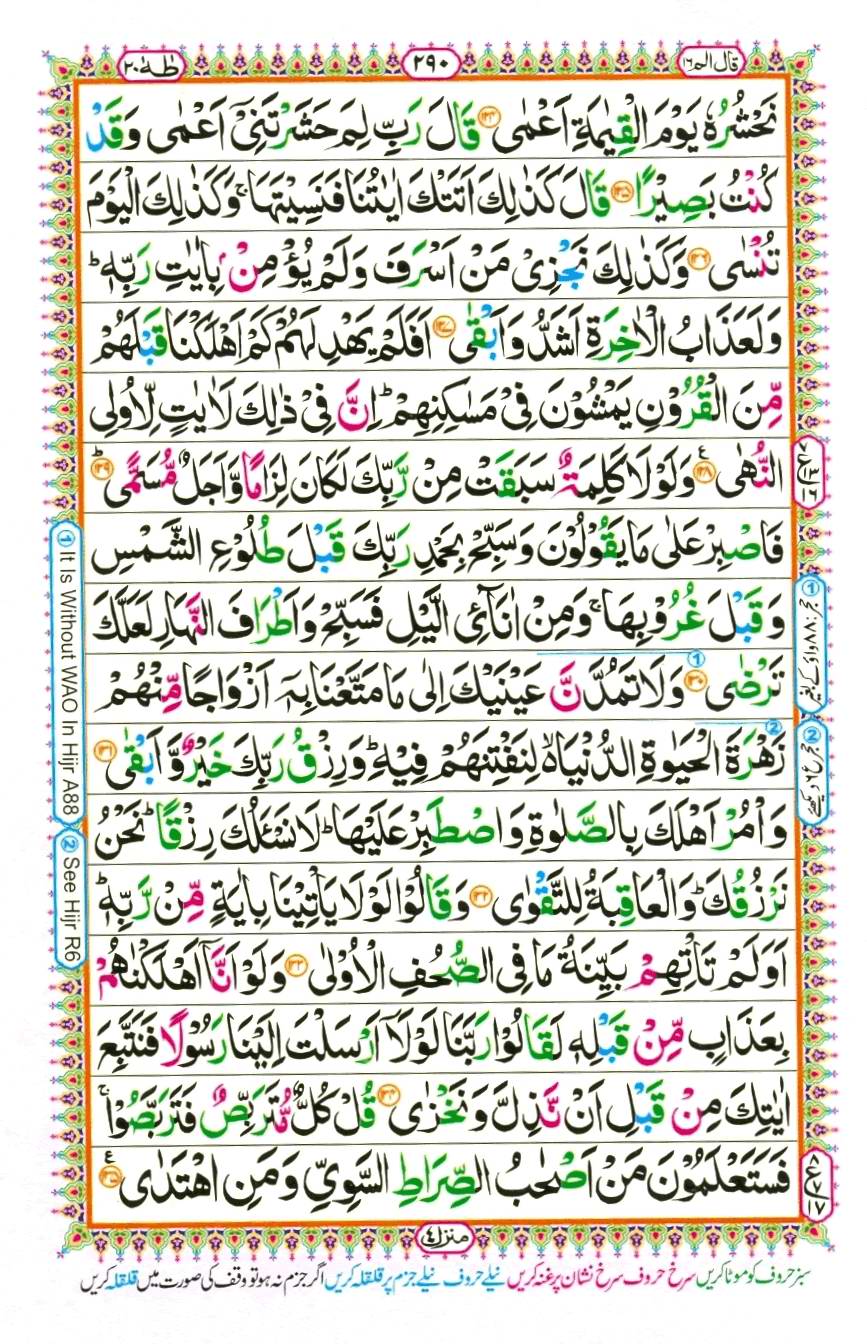 قال الم ١٦
٢٩٠
طٰهٰ ٢٠
نَحْشُرُهٗ يَوْمَ الْقِيٰمَةِ اَعْمٰى ﴿١٢٤﴾ قَالَ رَبِّ لِمَ حَشَرْتَنِىْٓ اَعْمٰى وَقَدْ
كُنْتُ بَصِيْرًا ﴿١٢٥﴾ قَالَ كَذٰلِكَ اَتَتْكَ اٰيٰتُنَا فَنَسِيْتَهَا ۚ وَكَذٰلِكَ الْيَوْمَ
تُنْسٰى ﴿١٢٦﴾ وَكَذٰلِكَ نَجْزِىْ مَنْ اَسْرَفَ وَلَمْ يُؤْمِنْۢ بِاٰيٰتِ رَبِّهٖ ؕ
وَلَعَذَابُ الْاٰخِرَةِ اَشَدُّ وَاَبْقٰى ﴿١٢٧﴾ اَفَلَمْ يَهْدِ لَهُمْ كَمْ اَهْلَكْنَا قَبْلَهُمْ
مِّنَ الْقُرُوْنِ يَمْشُوْنَ فِىْ مَسٰكِنِهِمْ ؕ اِنَّ فِىْ ذٰلِكَ لَاٰيٰتٍ لِّاُولِى
النُّهٰى ﴿١٢٨﴾ وَلَوْلَا كَلِمَةٌ سَبَقَتْ مِنْ رَّبِّكَ لَكَانَ لِزَامًا وَّاَجَلٌ مُّسَمًّى ﴿١٢٩﴾
فَاصْبِرْ عَلٰى مَا يَقُوْلُوْنَ وَسَبِّحْ بِحَمْدِ رَبِّكَ قَبْلَ طُلُوْعِ الشَّمْسِ
وَقَبْلَ غُرُوْبِهَا ۚ وَمِنْ اٰنَآئِ الَّيْلِ فَسَبِّحْ وَاَطْرَافَ النَّهَارِ لَعَلَّكَ
تَرْضٰى ﴿١٣٠﴾ وَلَا تَمُدَّنَّ عَيْنَيْكَ اِلٰى مَا مَتَّعْنَا بِهٖٓ اَزْوَاجًا مِّنْهُمْ
زَهْرَةَ الْحَيٰوةِ الدُّنْيَا ۙ لِنَفْتِنَهُمْ فِيْهِ ؕ وَرِزْقُ رَبِّكَ خَيْرٌ وَّاَبْقٰى ﴿١٣١﴾
وَاْمُرْ اَهْلَكَ بِالصَّلٰوةِ وَاصْطَبِرْ عَلَيْهَا ؕ لَا نَسْــَٔلُكَ رِزْقًا ؕ نَحْنُ
نَرْزُقُكَ ؕ وَالْعَاقِبَةُ لِلتَّقْوٰى ﴿١٣٢﴾ وَقَالُوْا لَوْلَا يَاْتِيْنَا بِاٰيَةٍ مِّنْ رَّبِّهٖ ؕ
اَوَلَمْ تَاْتِهِمْ بَيِّنَةُ مَا فِى الصُّحُفِ الْاُوْلٰى ﴿١٣٣﴾ وَلَوْ اَنَّاۤ اَهْلَكْنٰهُمْ
بِعَذَابٍ مِّنْ قَبْلِهٖ لَقَالُوْا رَبَّنَا لَوْلَاۤ اَرْسَلْتَ اِلَيْنَا رَسُوْلًا فَنَتَّبِعَ
اٰيٰتِكَ مِنْ قَبْلِ اَنْ نَّذِلَّ وَنَخْزٰى ﴿١٣٤﴾ قُلْ كُلٌّ مُّتَرَبِّصٌ فَتَرَبَّصُوْا ۚ
فَسَتَعْلَمُوْنَ مَنْ اَصْحٰبُ الصِّرَاطِ السَّوِيِّ وَمَنِ اهْتَدٰى ﴿١٣٥﴾
① It is Without WAO In Hijr A88
② See Hijr R6
① حجر:۸۸ واؤ کے بغیر
② حجر ع ۶ دیکھئے
منزل ٤
سبز حروف کو موٹا کریں سرخ حروف سرخ نشان پر غنہ کریں نیلے حروف نیلے جزم پر قلقلہ کریں اگر جزم نہ ہو تو وقف کی صورت میں قلقلہ کریں